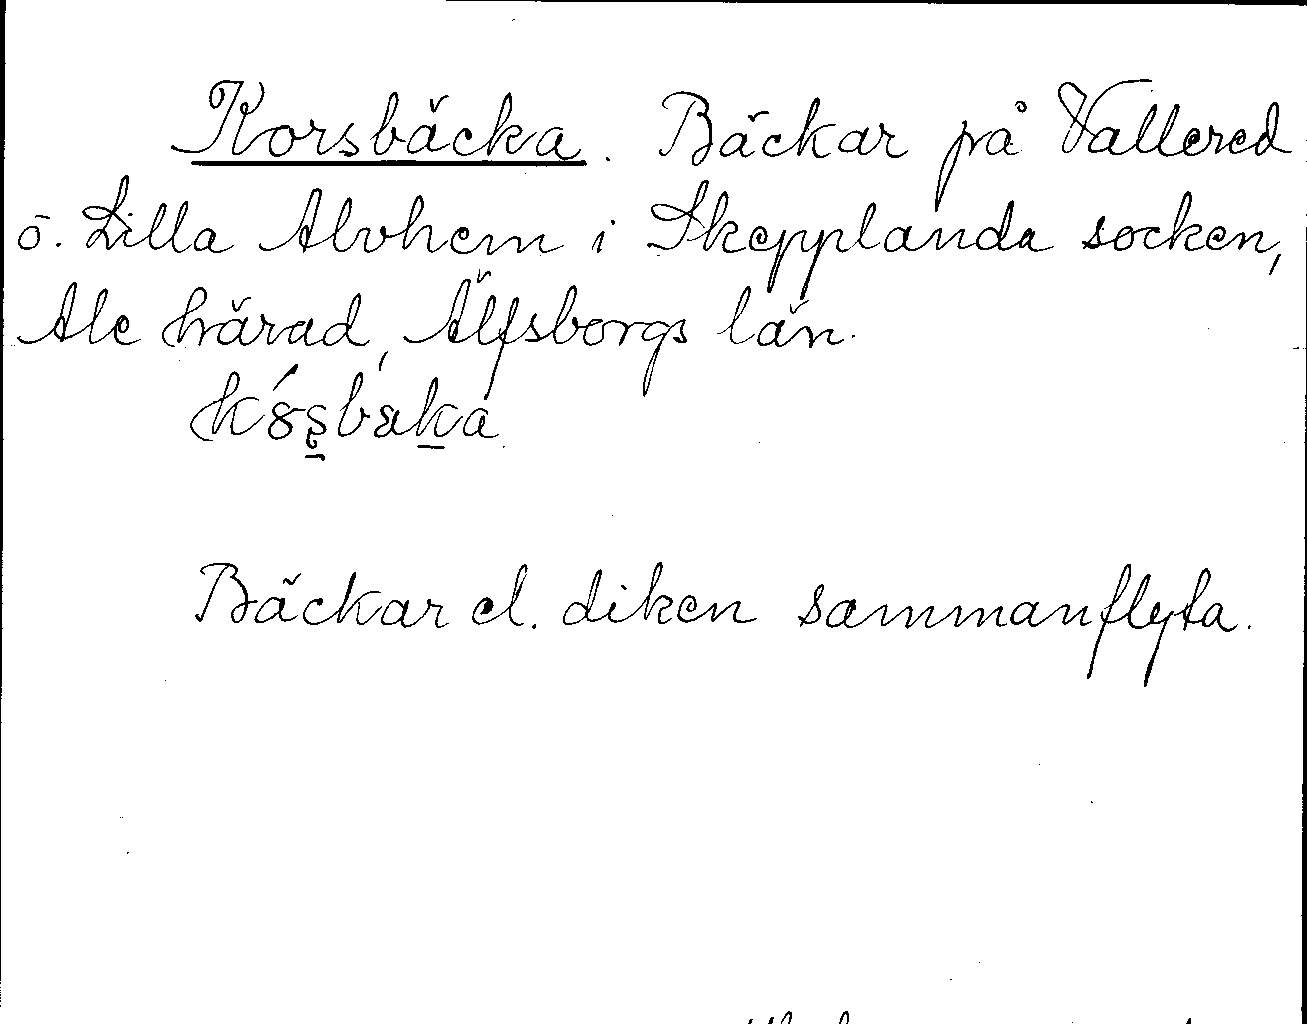 Korsbäcka. Bäckar på Vallered
ö. Lilla Alvhem i Skepplanda socken,
Ale härad, Älfsborgs län.
Bäckar el. diken sammanflyta.